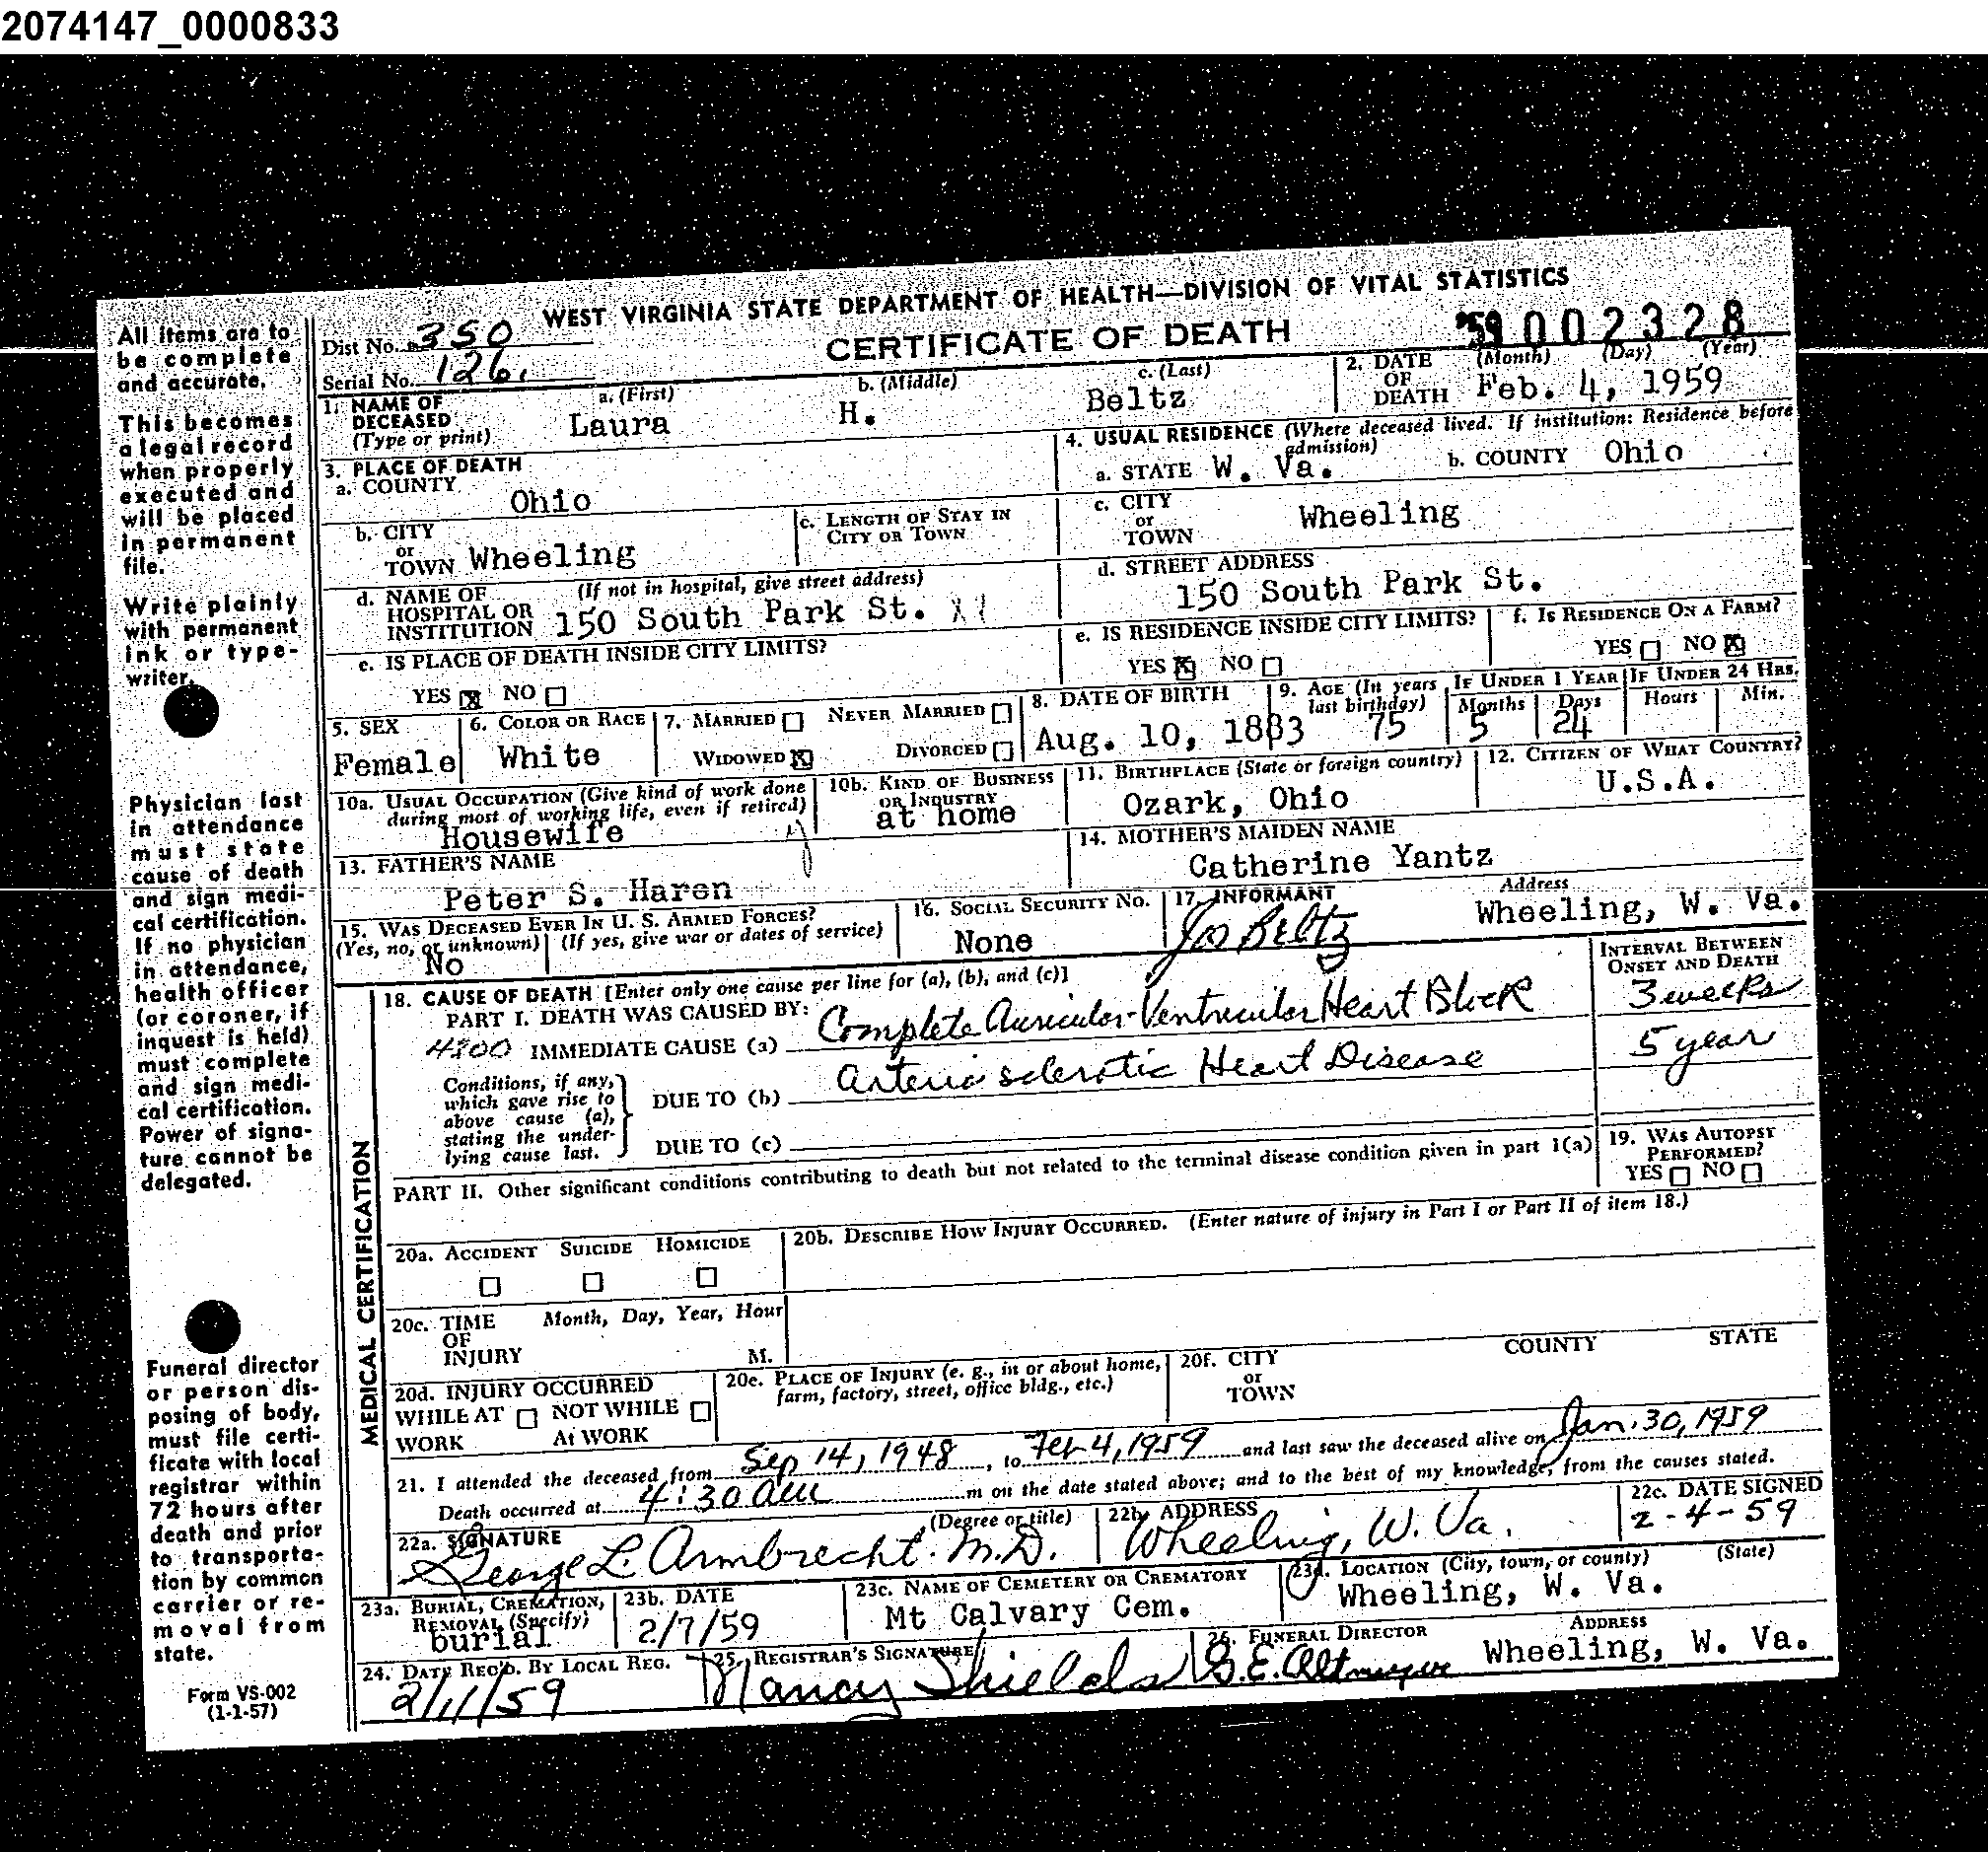 2074147_0000833
WEST VIRGINIA STATE DEPARTMENT OF HEALTH—DIVISION OF VITAL STATISTICS
CERTIFICATE OF DEATH
Dist No. 350
Serial No. 126.
'59 002328
1. NAME OF DECEASED (Type or print)
a. (First) Laura
b. (Middle) H.
c. (Last) Beltz
2. DATE OF DEATH (Month) (Day) (Year)
Feb. 4, 1959
3. PLACE OF DEATH
a. COUNTY Ohio
b. CITY or TOWN Wheeling
c. LENGTH OF STAY IN CITY OR TOWN
d. NAME OF HOSPITAL OR INSTITUTION (If not in hospital, give street address)
150 South Park St.
e. IS PLACE OF DEATH INSIDE CITY LIMITS?
YES X NO
4. USUAL RESIDENCE (Where deceased lived. If institution: Residence before admission)
a. STATE W. Va.
b. COUNTY Ohio
c. CITY or TOWN Wheeling
d. STREET ADDRESS
150 South Park St.
e. IS RESIDENCE INSIDE CITY LIMITS?
YES X NO
f. IS RESIDENCE ON A FARM?
YES NO X
5. SEX
Female
6. COLOR OR RACE
White
7. MARRIED NEVER MARRIED
WIDOWED X DIVORCED
8. DATE OF BIRTH
Aug. 10, 1883
9. AGE (In years last birthday)
75
IF UNDER 1 YEAR
Months 5 Days 24
IF UNDER 24 HRS.
Hours Min.
10a. USUAL OCCUPATION (Give kind of work done during most of working life, even if retired)
Housewife
10b. KIND OF BUSINESS OR INDUSTRY
at home
11. BIRTHPLACE (State or foreign country)
Ozark, Ohio
12. CITIZEN OF WHAT COUNTRY?
U.S.A.
13. FATHER'S NAME
Peter S. Haren
14. MOTHER'S MAIDEN NAME
Catherine Yantz
15. WAS DECEASED EVER IN U. S. ARMED FORCES?
(Yes, no, or unknown) (If yes, give war or dates of service)
No
16. SOCIAL SECURITY NO.
None
17. INFORMANT Address
Jos Beltz Wheeling, W. Va.
MEDICAL CERTIFICATION
18. CAUSE OF DEATH [Enter only one cause per line for (a), (b), and (c)]
INTERVAL BETWEEN ONSET AND DEATH
PART I. DEATH WAS CAUSED BY:
4200 IMMEDIATE CAUSE (a) Complete Auricular-Ventricular Heart Block 3 weeks
Conditions, if any, which gave rise to above cause (a), stating the underlying cause last.
DUE TO (b) Arterio sclerotic Heart Disease 5 year
DUE TO (c)
PART II. Other significant conditions contributing to death but not related to the terminal disease condition given in part 1(a)
19. WAS AUTOPSY PERFORMED?
YES NO
20a. ACCIDENT SUICIDE HOMICIDE
20b. DESCRIBE HOW INJURY OCCURRED. (Enter nature of injury in Part I or Part II of item 18.)
20c. TIME OF INJURY Month, Day, Year, Hour
M.
20d. INJURY OCCURRED
WHILE AT WORK NOT WHILE At WORK
20e. PLACE OF INJURY (e. g., in or about home, farm, factory, street, office bldg., etc.)
20f. CITY or TOWN COUNTY STATE
21. I attended the deceased from Sep 14, 1948, to Feb 4, 1959 and last saw the deceased alive on Jan. 30, 1959
Death occurred at 4:30 am m on the date stated above; and to the best of my knowledge, from the causes stated.
22a. SIGNATURE (Degree or title)
George L. Armbrecht. M.D.
22b. ADDRESS
Wheeling, W. Va.
22c. DATE SIGNED
2-4-59
23a. BURIAL, CREMATION, REMOVAL (Specify)
burial
23b. DATE
2/7/59
23c. NAME OF CEMETERY OR CREMATORY
Mt Calvary Cem.
23d. LOCATION (City, town, or county) (State)
Wheeling, W. Va.
24. DATE REC'D. BY LOCAL REG.
2/11/59
25. REGISTRAR'S SIGNATURE
Nancy Shields
26. FUNERAL DIRECTOR ADDRESS
G.E. Altmeyer Wheeling, W. Va.
All items are to
be complete
and accurate.
This becomes
a legal record
when properly
executed and
will be placed
in permanent
file.
Write plainly
with permanent
ink or type-
writer.
Physician last
in attendance
must state
cause of death
and sign medi-
cal certification.
If no physician
in attendance,
health officer
(or coroner, if
inquest is held)
must complete
and sign medi-
cal certification.
Power of signa-
ture cannot be
delegated.
Funeral director
or person dis-
posing of body,
must file certi-
ficate with local
registrar within
72 hours after
death and prior
to transporta-
tion by common
carrier or re-
moval from
state.
Form VS-002
(1-1-57)